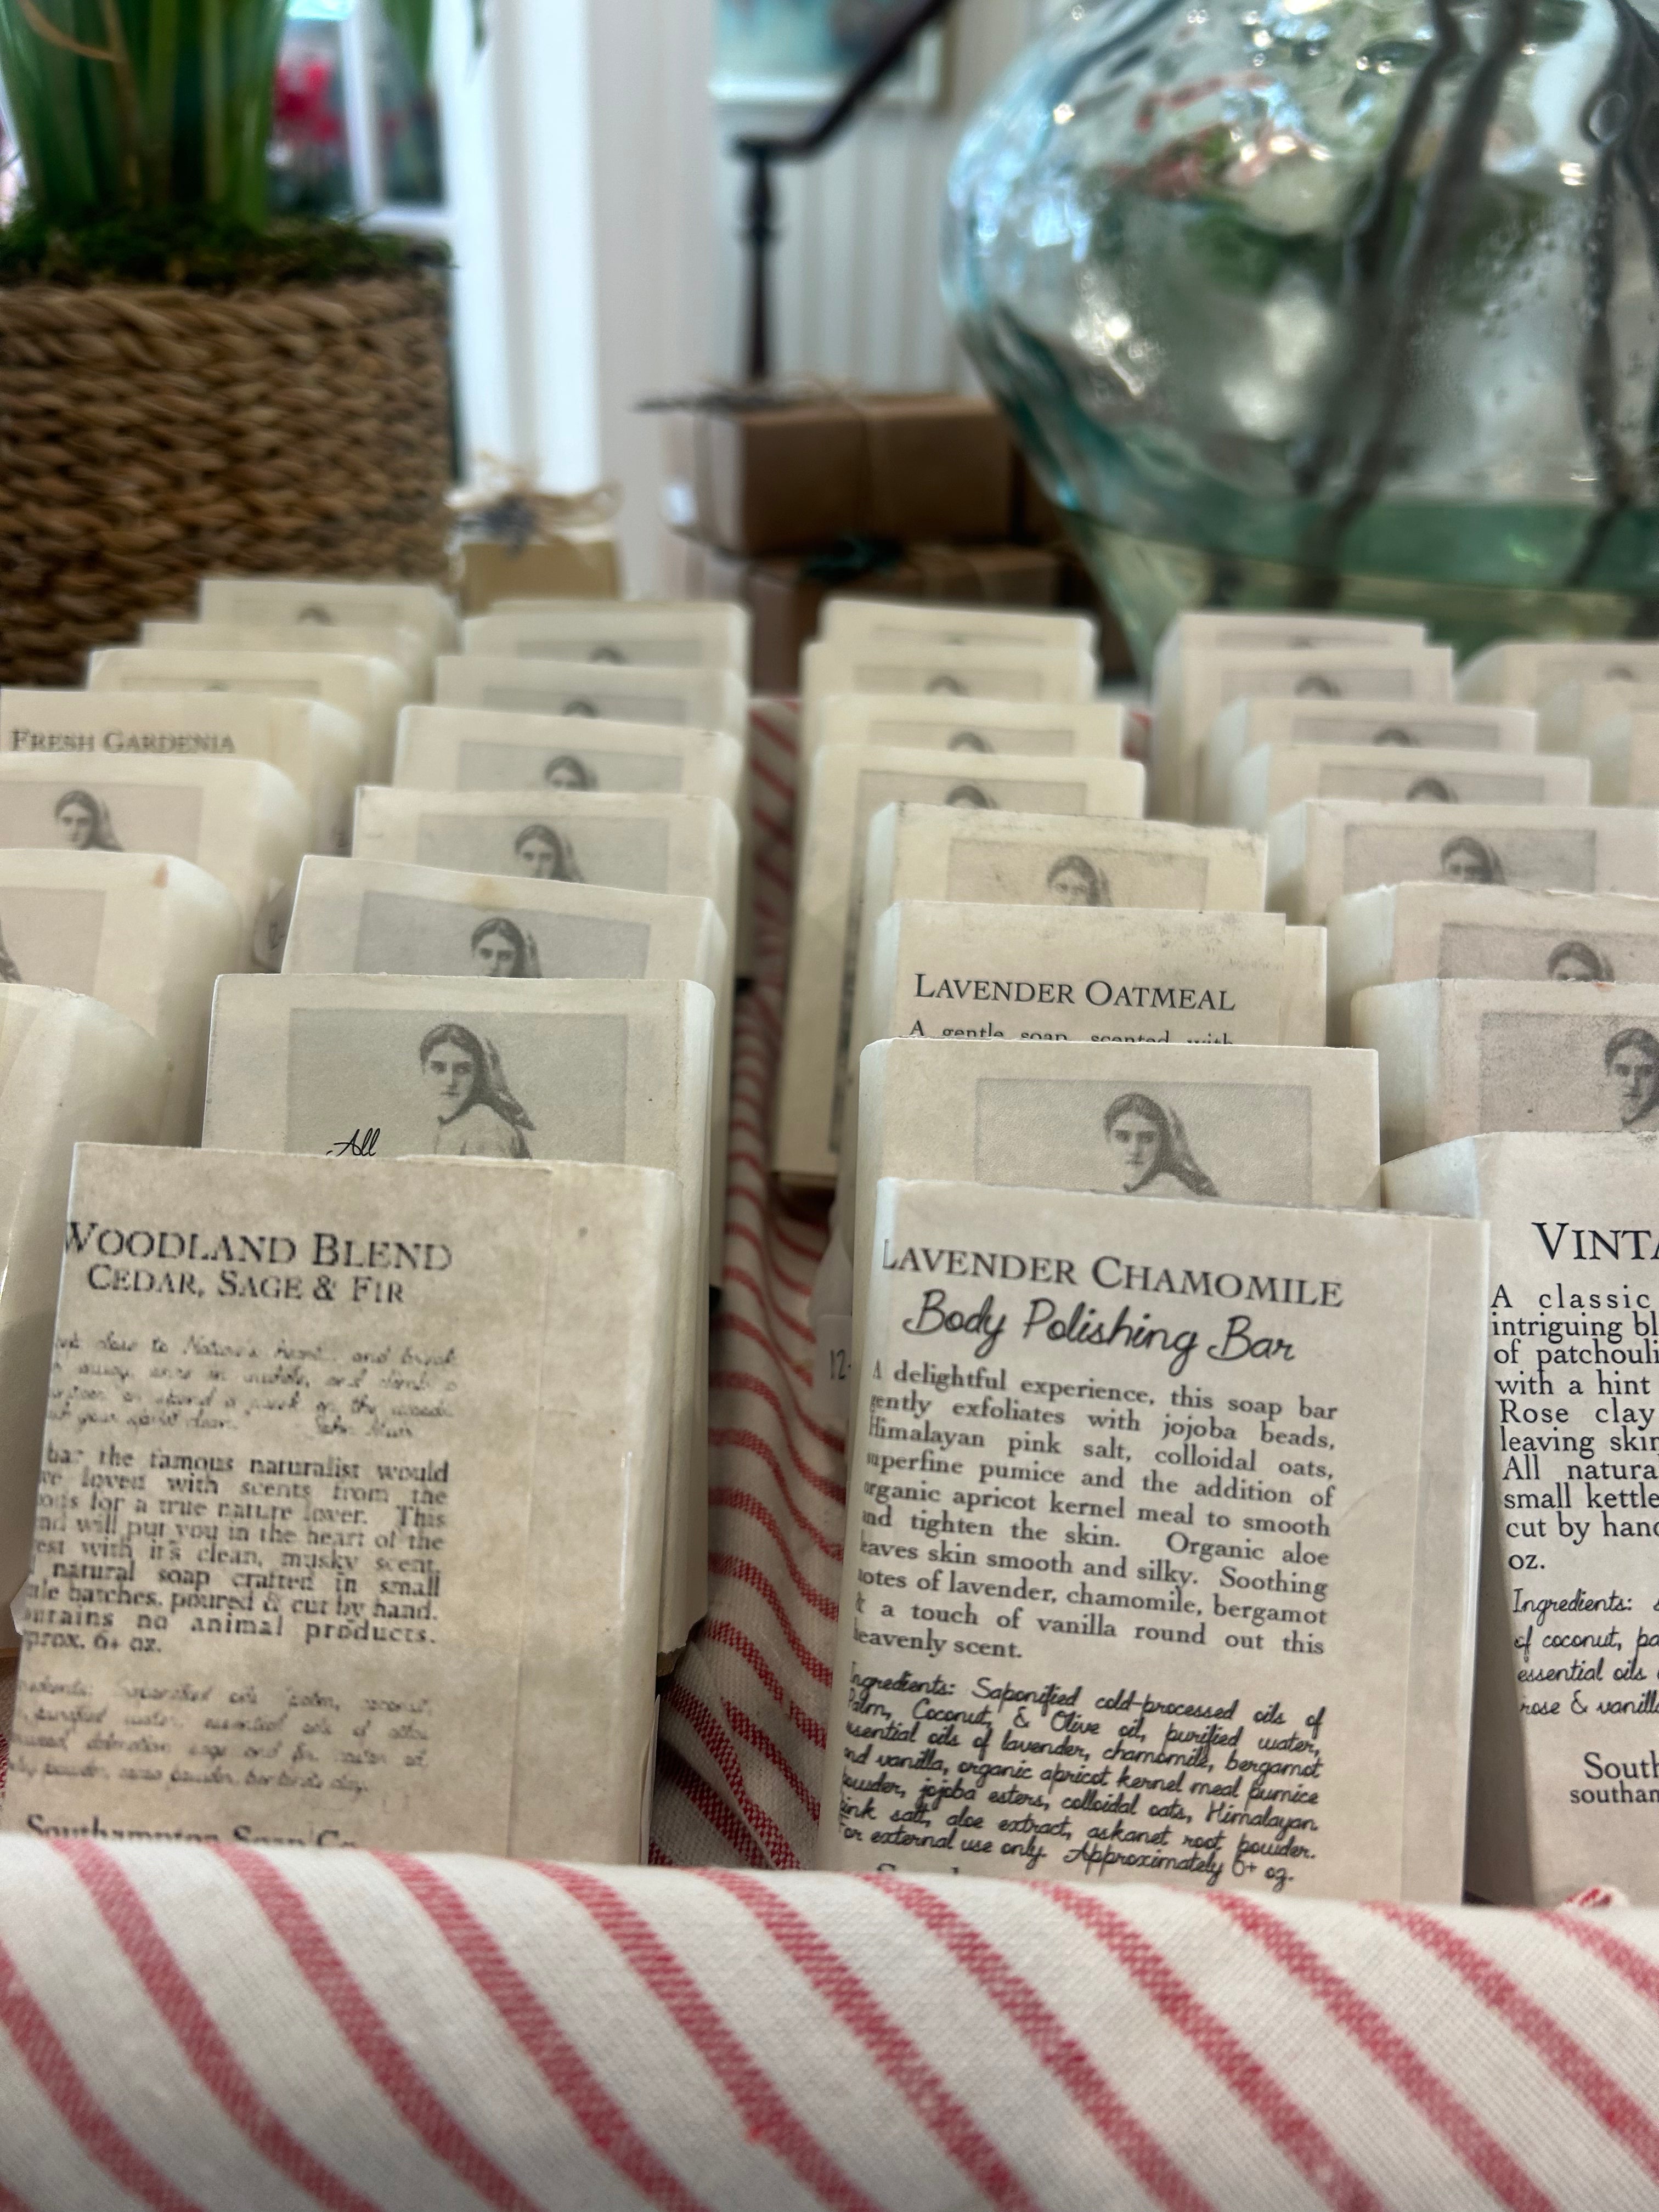 FRESH GARDENIA
LAVENDER OATMEAL
A gentle soap, scented with
All
WOODLAND BLEND
CEDAR, SAGE & FIR
to Nature's heart... and break
and climb a
spend a week in the woods.
your spirit clean. John Muir
bar the famous naturalist would
loved with scents from the
for a true nature lover. This
will put you in the heart of the
with it's clean, musky scent.
natural soap crafted in small
batches, poured & cut by hand.
no animal products.
6+ oz.
Saponified oils palm, coconut,
purified water, essential oils of
sage and fir
powder,
Southampton Soap Co
12
LAVENDER CHAMOMILE
Body Polishing Bar
A delightful experience, this soap bar
gently exfoliates with jojoba beads,
Himalayan pink salt, colloidal oats,
uperfine pumice and the addition of
organic apricot kernel meal to smooth
and tighten the skin. Organic aloe
leaves skin smooth and silky. Soothing
notes of lavender, chamomile, bergamot
& a touch of vanilla round out this
heavenly scent.
Ingredients: Saponified cold-processed oils of
Palm, Coconut, & Olive oil, purified water,
ssential oils of lavender, chamomile, bergamot
nd vanilla, organic apricot kernel meal pumice
powder, jojoba esters, colloidal oats, Himalayan
pink salt, aloe extract, askanet root powder.
For external use only. Approximately 6+ oz.
VINTA
A classic
intriguing bl
of patchouli
with a hint
Rose clay
leaving skin
All natura
small kettle
cut by hand
oz.
Ingredients:
of coconut, pa
essential oils
rose & vanilla
South
southam